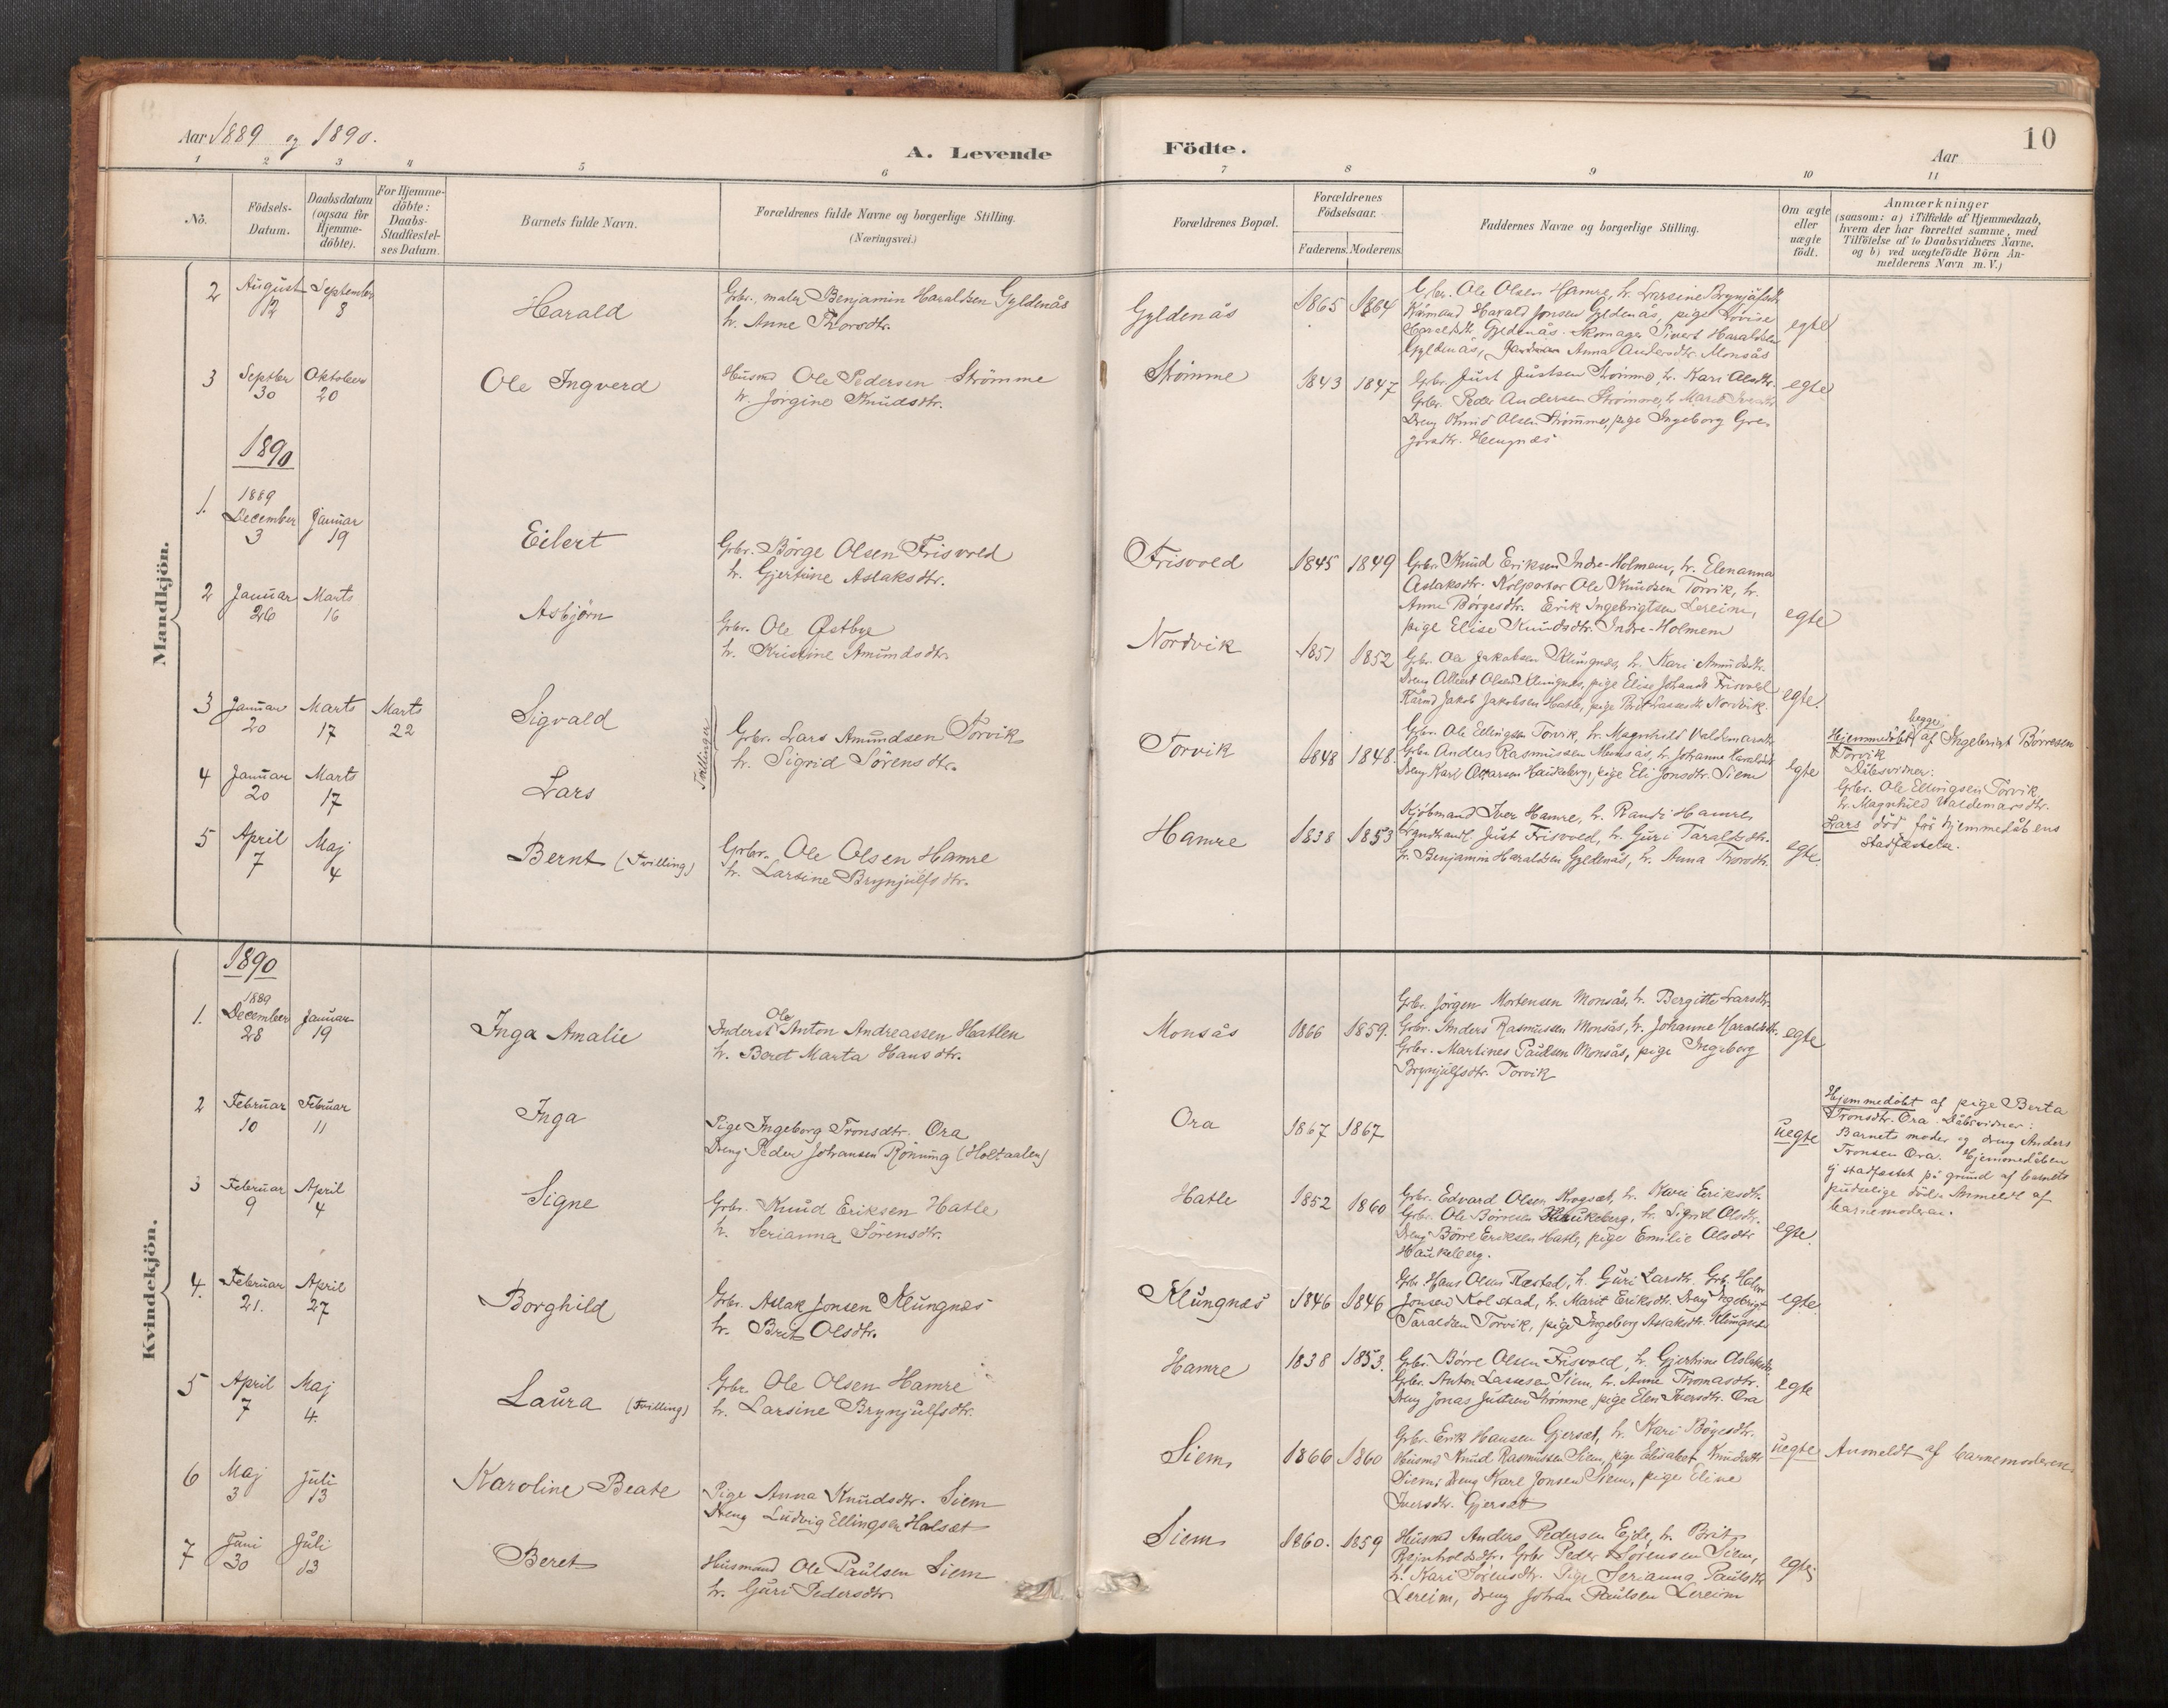 Aar 1889 og 1890.
A. Levende
Födte.
Aar
10
1 2 3 4 5 6 7 8 9 10 11
No.
Födsels-
Datum.
Daabsdatum
(ogsaa for
Hjemme-
döbte).
For Hjemme-
döbte:
Daabs-
Stadfæstel-
ses Datum.
Barnets fulde Navn.
Forældrenes fulde Navne og borgerlige Stilling.
(Næringsvei.)
Forældrenes Bopæl.
Forældrenes
Födselsaar.
Faderens. Moderens.
Faddernes Navne og borgerlige Stilling.
Om ægte
eller
uægte
födt.
Anmærkninger
(saasom: a) i Tilfælde af Hjemmedaab,
hvem der har forrettet samme, med
Tilföielse af to Daabsvidners Navne,
og b) ved uægtefödte Börn An-
melderens Navn m. V.)
Mandkjön.
2
August
12
September
8
Harald
Grbr., maler Benjamin Haraldsen Gyldenås
h. Anne Thorsdtr.
Gyldenås
1865 1864
Grbr. Ole Olsen Hamre, h. Larsine Brynjulfsdtr
Harald Jonsen Gyldenås, pige Lovise
Haraldsdtr. Gyldenås. Skomager Sivert Haraldsen
Gyldenås, Anna Andersdtr. Monsås
egte
3
Septbr
30
Oktober
20
Ole Ingverd
Husmd Ole Pedersen Strömme
h. Jorgine Knudsdtr.
Strömme
1843 1847
Grbr. Just Justsen Strömme, h. Kari Olsdtr.
Grbr. Peder Andersen Strömme, h. Marit
Dreng Knud Olsen Strömme, pige Ingeborg Gre-
gorsdtr. Hengnæs
egte
1890
1.
1889
December
3
Januar
19
Eilert
Grbr. Börge Olsen Frisvold
h. Gjertine Aslaksdtr.
Frisvold
1845 1849
Grbr. Knud Eriksen Indre-Holmem, h. Elenanna
Aslaksdtr. Kolportør Ole Knudsen Torvik, h.
Anne Börgesdtr. Erik Ingebrigtsen Lereim,
pige Elise Knudsdtr. Indre-Holmem
egte
2
Januar
26
Marts
16
Asbjörn
Grbr. Ole Østbye
h. Kristine Amundsdtr.
Nordvik
1851 1852
Grbr. Ole Jakobsen Klungnes, h. Kari Amundsdtr.
Dreng Albert Olsen Klungnes, pige Elise Johansdtr Frisvold
Jakob Jakobsen Hatle, pige Brit Lassesdtr Nordvik.
egte.
3
Januar
20
Marts
17
Marts
22
Sigvald
Tvillinger
Grbr. Lars Amundsen Torvik
h. Sigrid Sörensdtr.
Torvik
1848 1848.
Grbr. Ole Ellingsen Torvik, h. Magnhild Valdemarsdtr
Grbr. Anders Rasmussen Monsås, h. Johanne Haraldsdtr
Dreng Karl Haukeberg, pige Eli Jonsdtr. Siem
egte
begge
Hjemmedöbt af Ingebrigt Börresen
Torvik
Dåbsvidner:
Grbr. Ole Ellingsen Torvik,
h. Magnhild Valdemarsdtr.
Lars död för hjemmedåbens
stadfæstelse.
4
Januar
20
Marts
17
Lars
5
April
7
Maj
4
Bernt (Tvilling)
Grbr. Ole Olsen Hamre
h. Larsine Brynjulfsdtr.
Hamre
1838 1853
Kjöbmand Iver Hamre, h. Randi Hamre
Just Frisvold, h. Guri Taraldsdtr.
Gr. Benjamin Haraldsen Gyldenås, h. Anna Thorsdtr.
egte.
Kvindekjön.
1890
1.
1889
December
28
Januar
19
Inga Amalie
Ole
Inderst Anton Andreassen Hatlen
h. Beret Marta Hansdtr.
Monsås
1866 1859.
Grbr. Jörgen Mortensen Monsås, h. Bergitte Larsdtr.
Grbr. Anders Rasmussen Monsås, h. Johanne Haraldsdtr.
Grbr. Martines Paulsen Monsås, pige Ingeborg
Brynjulfsdtr. Torvik
egte
2
Februar
10
Februar
11
Inga
Pige Ingeborg Tronsdtr. Ora
Dreng Peder Johansen Rönning (Holtaalen)
Ora
1867 1867
uegte
Hjemmedöbt af pige Berta
Tronsdtr. Ora. Dåbsvidner:
Barnets moder og dreng Anders
Tronsen Ora. Hjemmedåben
ej stadfæstet på grund af barnets
pludselige död. Anmeldt af
barnemoderen.
3
Februar
9
April
4
Signe
Grbr. Knud Eriksen Hatle
h. Serianna Sörensdtr.
Hatle
1852 1860
Grbr. Edvard Olsen Krogsæt, h. Kari Eriksdtr.
Grbr. Ole Börresen Haukeberg, h. Sigrid Olsdtr.
Dreng Börre Eriksen Hatle, pige Emilie Olsdtr
Haukeberg.
egte.
4.
Februar
21.
April
27
Borghild
Grbr. Aslak Jonsen Klungnes
h. Brit Olsdtr.
Klungnes
1846 1846
Grbr. Hans Olsen Ræstad, h. Guri Larsdtr. Grb. Halvor
Jonsen Kolstad, h. Marit Eriksdtr. Dreng Ingebrigt
Taraldsen Torvik, pige Ingeborg Aslaksdtr. Klungnes
egte.
5
April
7
Maj
4.
Laura (Tvilling)
Grbr. Ole Olsen Hamre
h. Larsine Brynjulfsdtr.
Hamre
1838 1853.
Grbr. Börre Olsen Frisvold, h. Gjertine Aslaksdtr
Grbr. Anton Lassesen Siem, h. Anne Thomasdtr.
Dreng Jonas Justsen Strömme, pige Elen Iversdtr. Ora
egte
6
Maj
3
Juli
13
Karoline Beate
Pige Anna Knudsdtr. Siem
Dreng Ludvig Ellingsen Halsæt
Siem
1866 1860
Grbr. Erik Hansen Gjersæt, h. Kari Bögesdtr.
Husmd Knud Rasmussen Siem, pige Elisabet Knudsdtr
Siem, Dreng Karl Jonsen Siem, pige Eline
Iversdtr. Gjersæt
uegte
Anmeldt af barnemoderen.
7
Juni
30
Juli
13
Beret
Husmand Ole Paulsen Siem
h. Guri Pedersdtr
Siem
1860. 1859
Husmd Anders Pedersen Ejde, h. Brit
Reinholdsdtr. Grbr Peder Sörensen Siem,
h. Kari Sörensdtr. Pige Serianna Paulsdtr
Lereim, dreng Johan Paulsen Lereim
egte